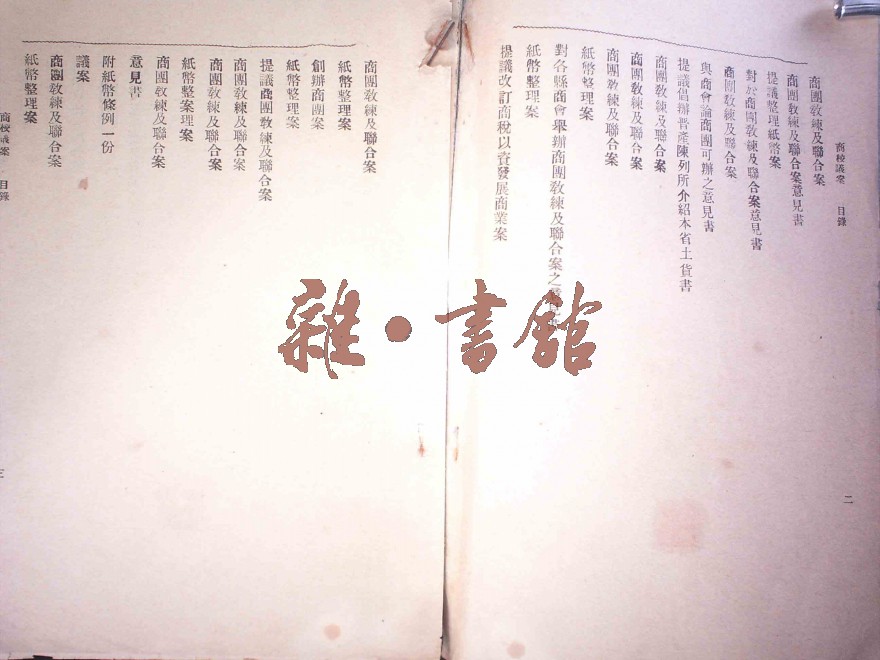 商校議案 目錄
二
商團教練及聯合案
商團教練及聯合案意見書
提議整理紙幣案
對於商團教練及聯合案意見書
商團教練及聯合案
與商會論商團可辦之意見書
提議倡辦晉產陳列所介紹本省土貨書
商團教練及聯合案
商團教練及聯合案
商團教練及聯合案
紙幣整理案
對各縣商會舉辦商團教練及聯合案之意見書
紙幣整理案
提議改訂商稅以資發展商業案
商團教練及聯合案
紙幣整理案
創辦商團案
紙幣整理案
提議商團教練及聯合案
商團教練及聯合案
商團教練及聯合案
紙幣整案理案
商團教練及聯合案
意見書
附紙幣條例一份
議案
商團教練及聯合案
紙幣整理案
商校議案 目錄
三
雜•書館